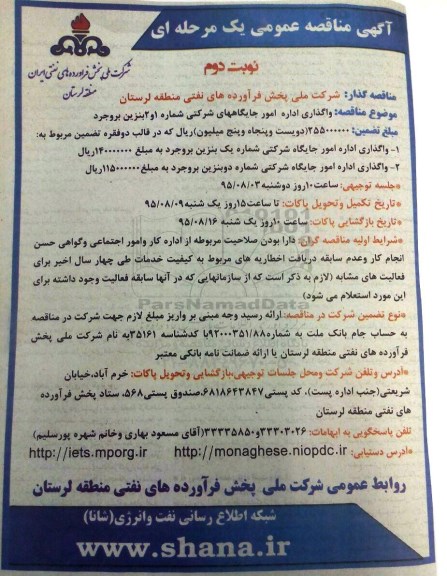 آگهی مناقصه عمومی یک مرحله ای
شرکت ملی پخش فرآورده‌های نفتی ایران
منطقه لرستان
نوبت دوم
مناقصه گذار: شرکت ملی پخش فرآورده های نفتی منطقه لرستان
موضوع مناقصه: واگذاری اداره امور جایگاههای شرکتی شماره ۱و۲بنزین بروجرد
مبلغ تضمین: ۲۵۵۰۰۰۰۰۰(دویست وپنجاه وپنج میلیون)ریال که در قالب دوفقره تضمین مربوط به:
۱- واگذاری اداره امور جایگاه شرکتی شماره یک بنزین بروجرد به مبلغ ۱۴۰۰۰۰۰۰۰ریال
۲- واگذاری اداره امور جایگاه شرکتی شماره دوبنزین بروجرد به مبلغ ۱۱۵۰۰۰۰۰۰ریال
*جلسه توجیهی: ساعت۱۰روز دوشنبه۹۵/۰۸/۰۳
*تاریخ تکمیل وتحویل پاکات: تا ساعت۱۵روز یک شنبه۹۵/۰۸/۰۹
*تاریخ بازگشایی پاکات: ساعت ۱۰روز یک شنبه ۹۵/۰۸/۱۶
*شرایط اولیه مناقصه گران: دارا بودن صلاحیت مربوطه از اداره کار وامور اجتماعی وگواهی حسن
انجام کار وعدم سابقه دریافت اخطاریه های مربوط به کیفیت خدمات طی چهار سال اخیر برای
فعالیت های مشابه (لازم به ذکر است که از سازمانهایی که در آنها سابقه فعالیت وجود داشته برای
این مورد استعلام می شود)
*نوع تضمین شرکت در مناقصه: ارائه رسید وجه مبنی بر واریز مبلغ لازم جهت شرکت در مناقصه
به حساب جام بانک ملت به شماره۹۲۰۰۰۳۵۱/۸۸با کدشناسه ۳۵۱۶۱به نام شرکت ملی پخش
فرآورده های نفتی منطقه لرستان یا ارائه ضمانت نامه بانکی معتبر
*آدرس وتلفن شرکت ومحل جلسات توجیهی،بازگشایی وتحویل پاکات: خرم آباد،خیابان
شریعتی(جنب اداره پست)، کد پستی۶۸۱۸۶۴۳۸۴۷،صندوق پستی۵۶۸، ستاد پخش فرآورده
های نفتی منطقه لرستان
تلفن پاسخگویی به ابهامات: ۳۳۳۰۳۰۲۶و۳۳۳۳۵۸۵۰(آقای مسعود بهاری وخانم شهره پورسلیم)
*آدرس دستیابی: http://monaghese.niopdc.ir http://iets.mporg.ir
روابط عمومی شرکت ملی پخش فرآورده های نفتی منطقه لرستان
شبکه اطلاع رسانی نفت وانرژی(شانا)
www.shana.ir
ParsNamadData